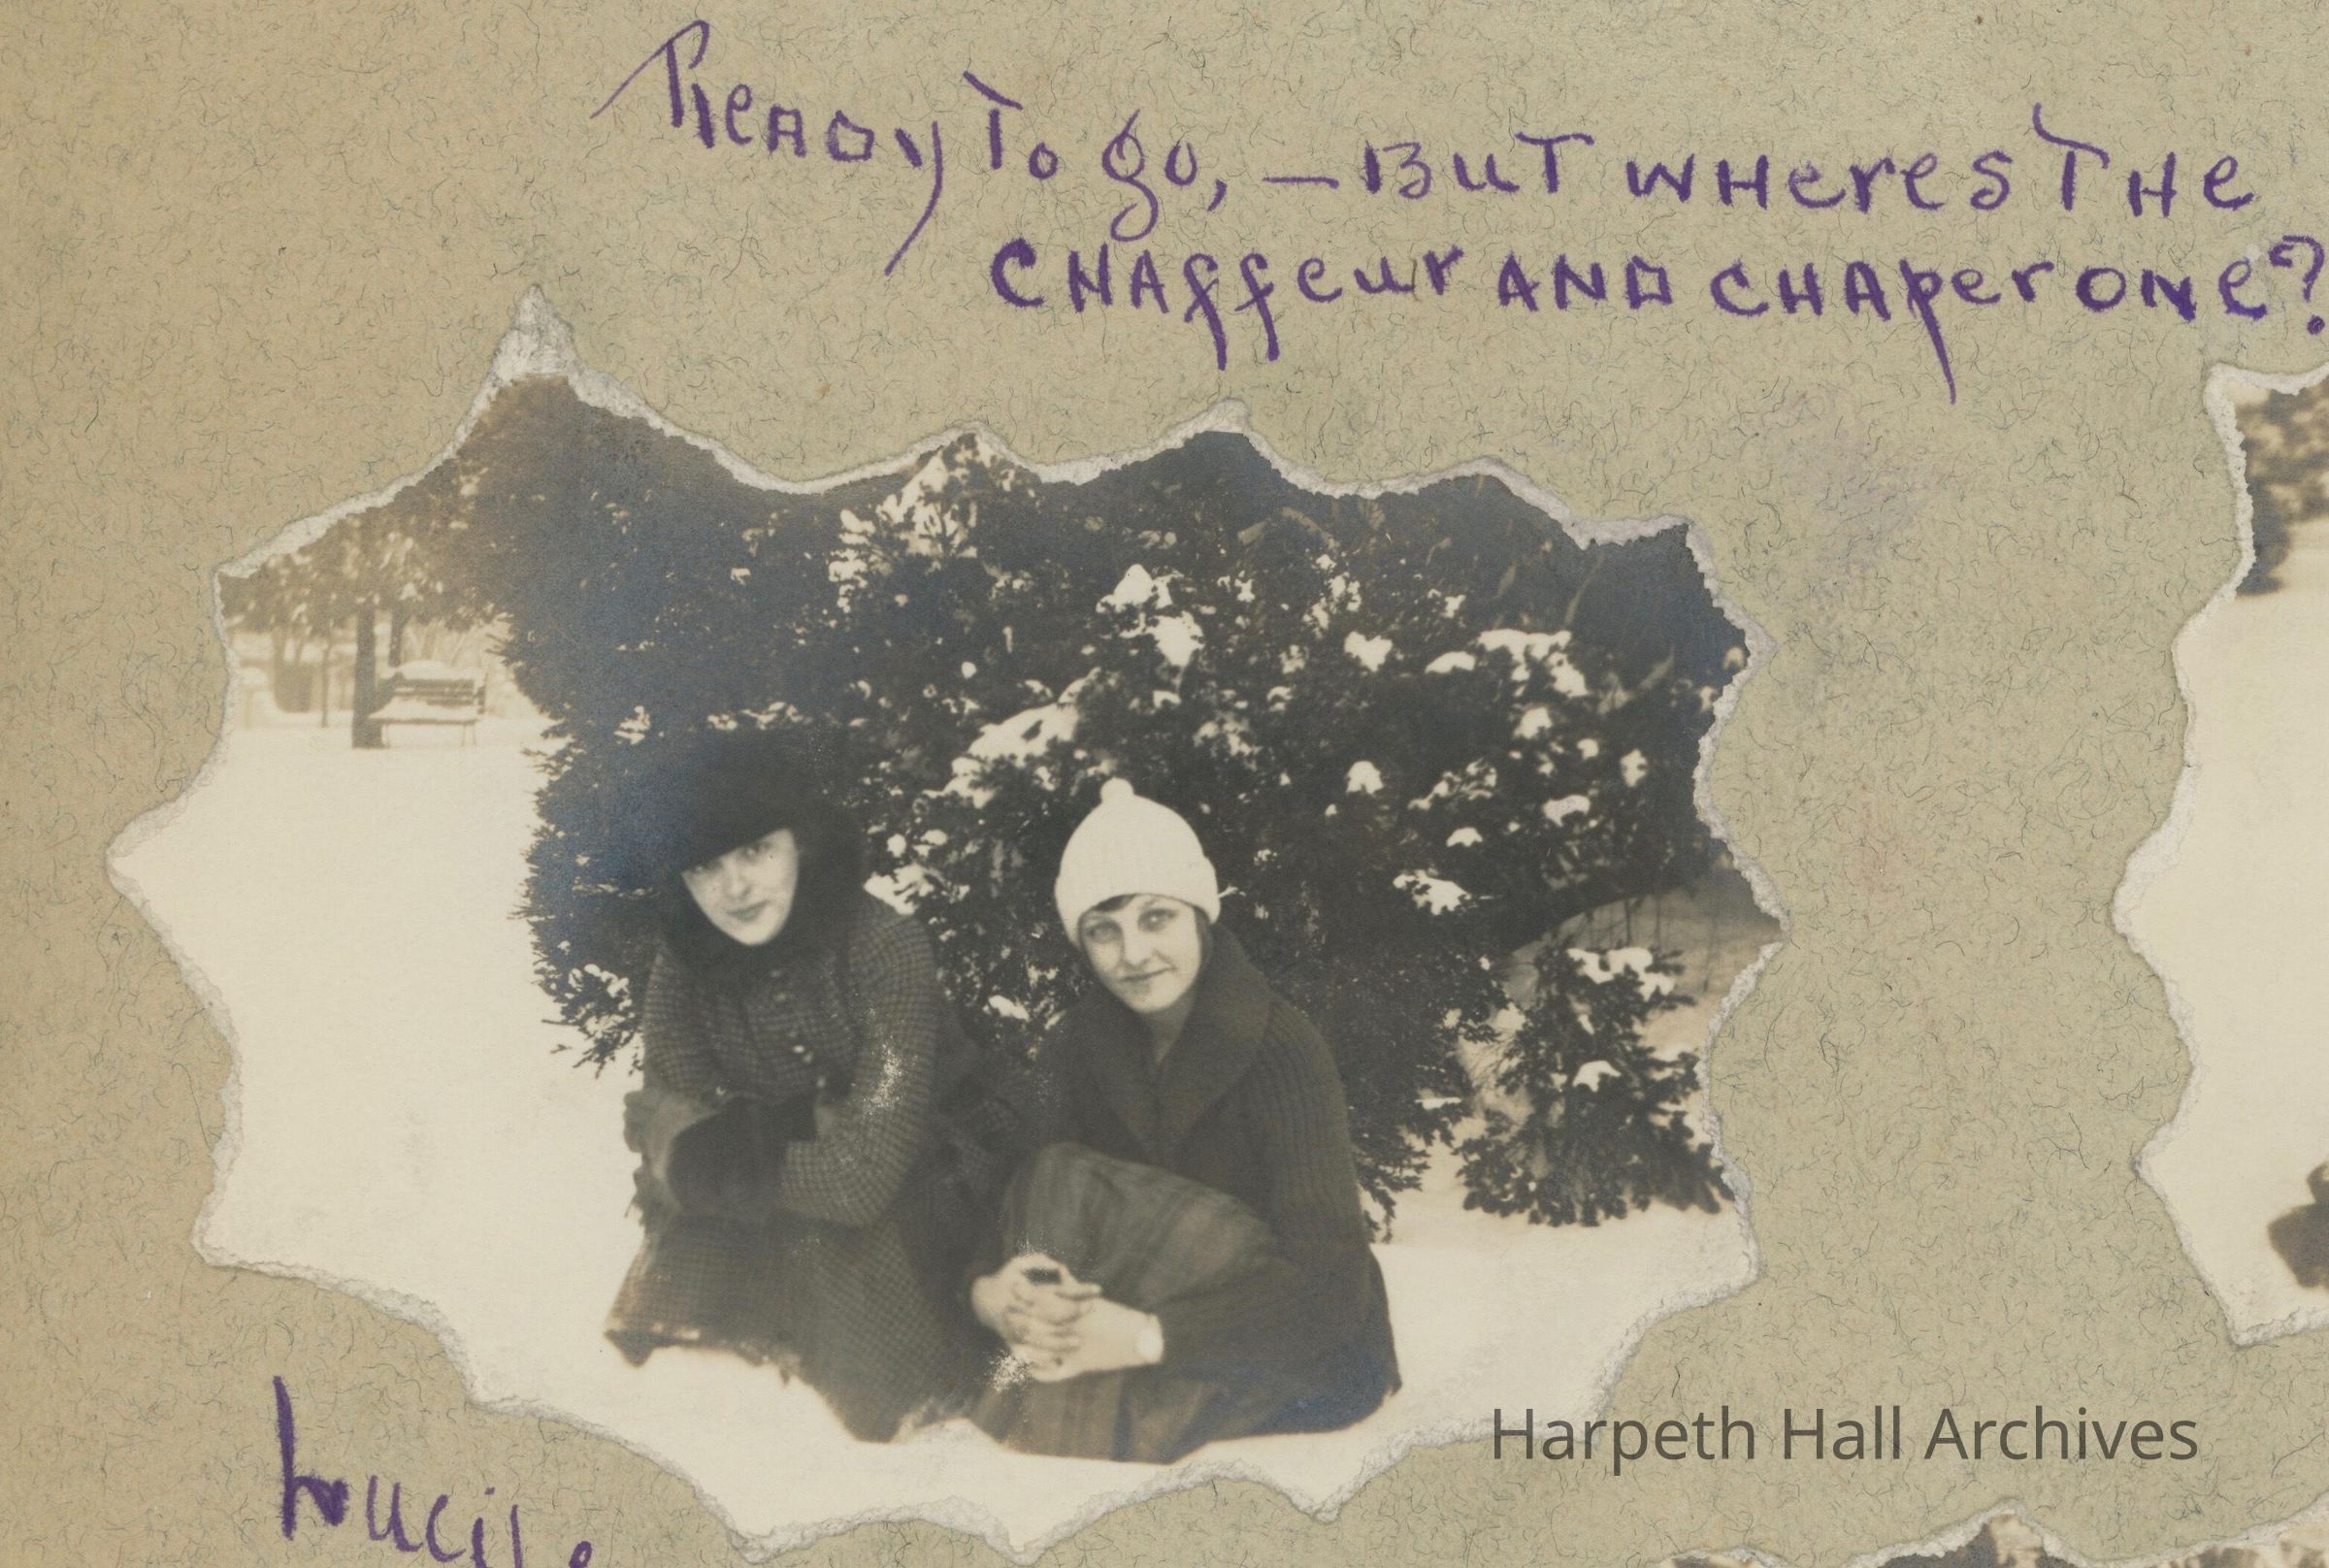 Ready To go, — BUT WHeres THe
CHAffeur AND CHAperone?
Lucile
Harpeth Hall Archives